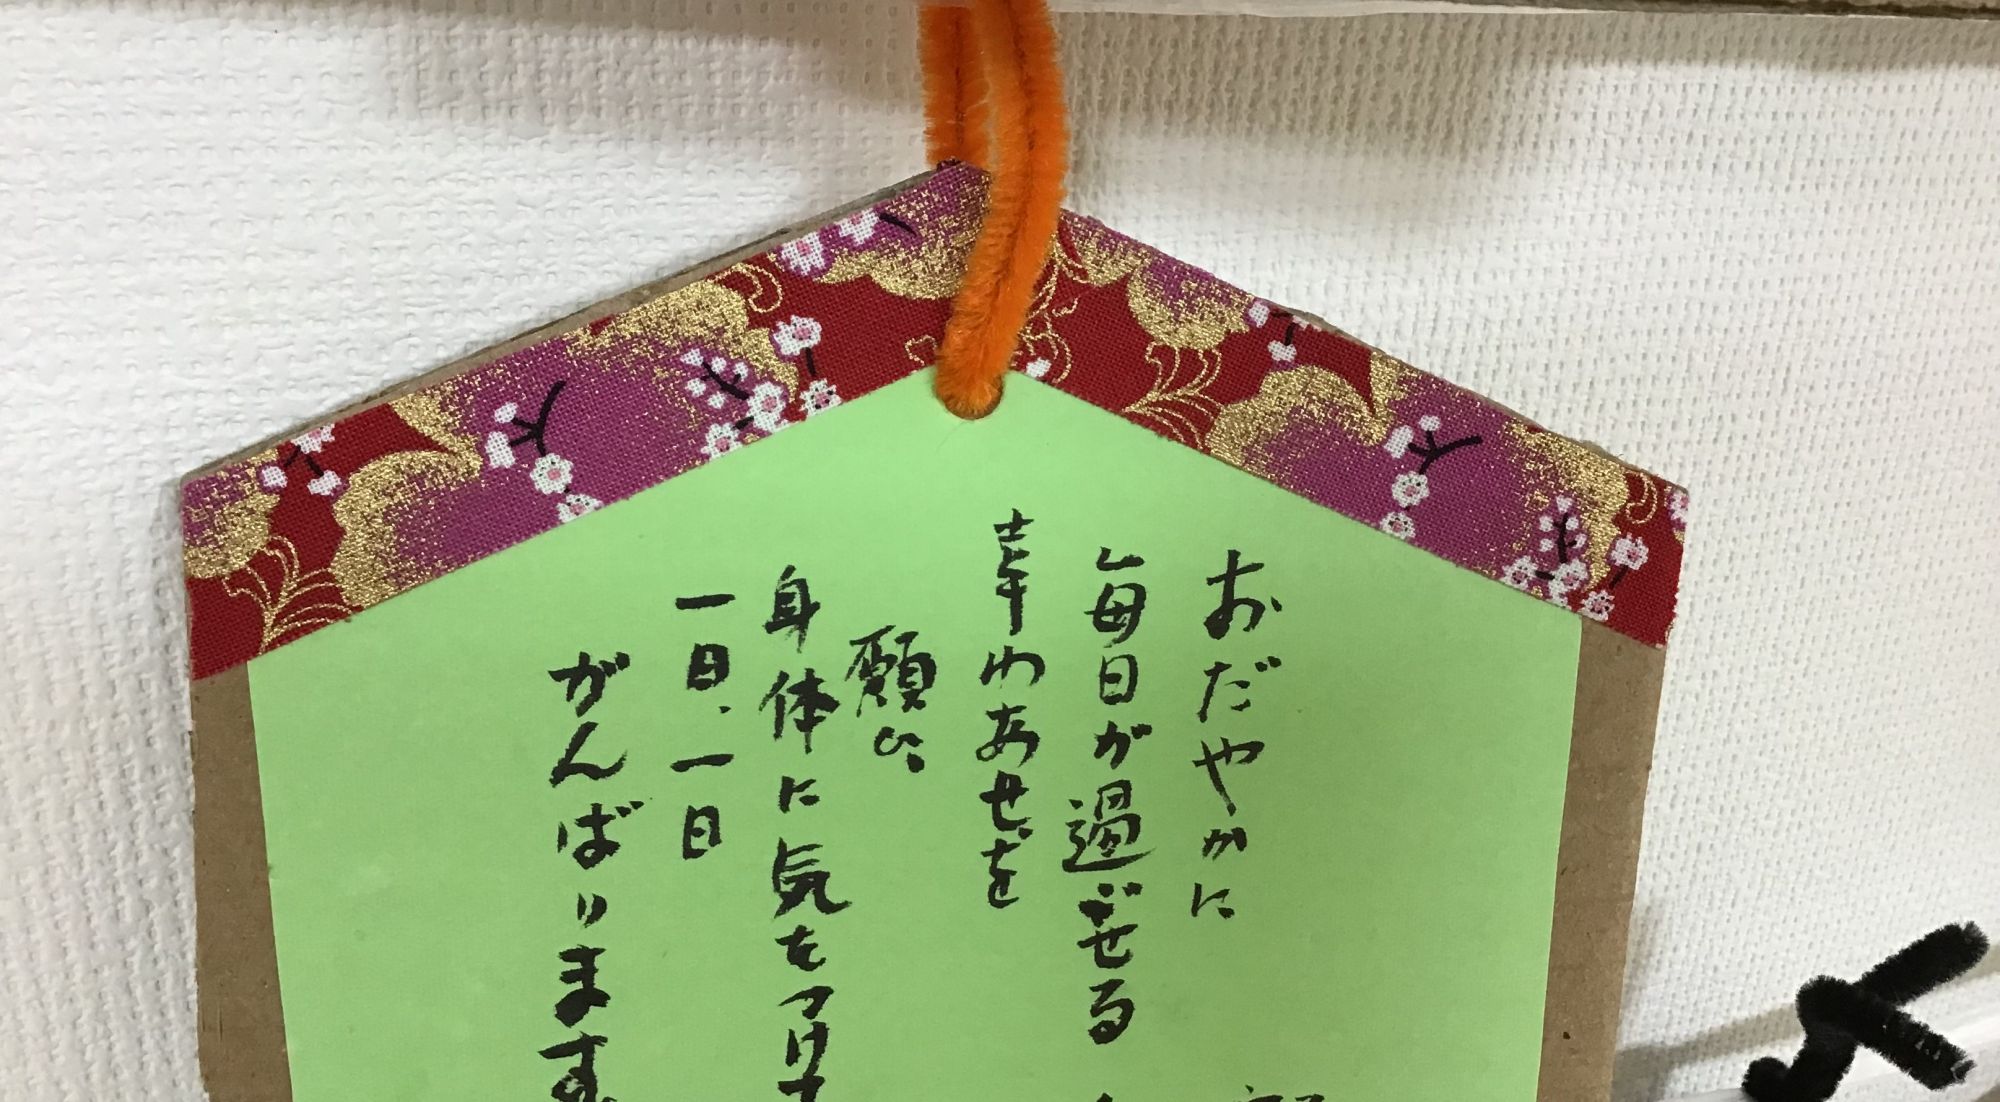 おだやかに
毎日が過ごせる
幸わあせを
願い
身体に気をつけ
一日、一日
がんばります